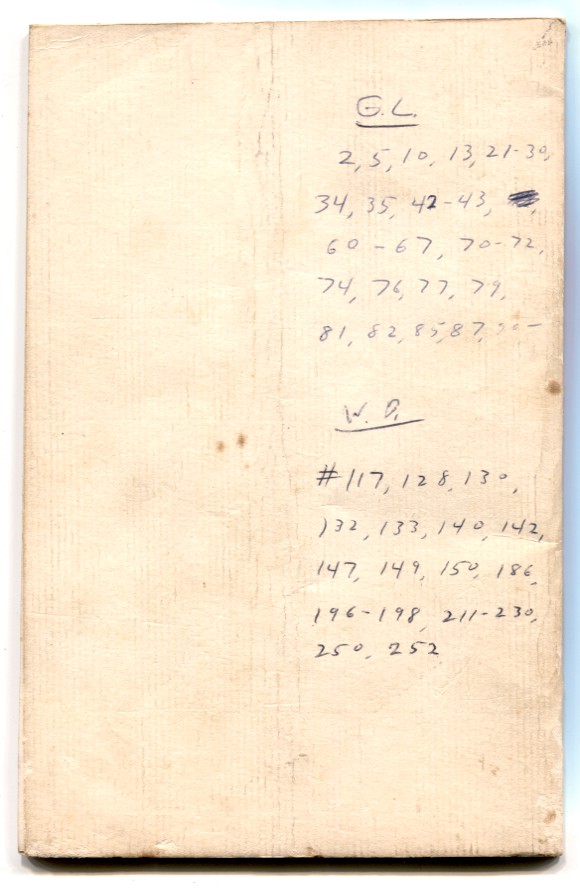 G.L.
2, 5, 10, 13, 21-30,
34, 35, 42-43,
60-67, 70-72,
74, 76, 77, 79,
81, 82, 85, 87,
W.D.
#117, 128, 130,
132, 133, 140, 142,
147, 149, 150, 186,
196-198, 211-230,
250, 252